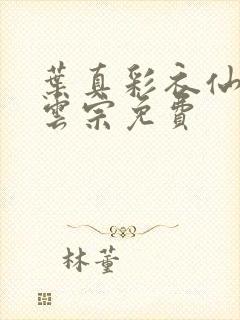 葉真彩衣仙
雲宗免費
林董